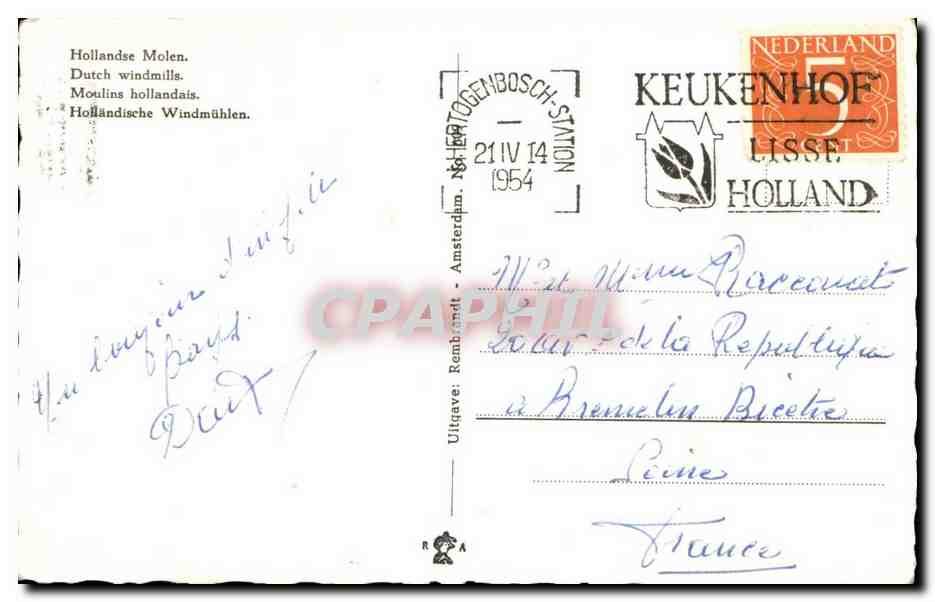 Hollandse Molen.
Dutch windmills.
Moulins hollandais.
Holländische Windmühlen.
'S-HERTOGENBOSCH-STATION
21 IV 14
1954
KEUKENHOF
LISSE
HOLLAND
NEDERLAND
5
CENT
Un bonjour d'un
pays.
Uitgave: Rembrandt - Amsterdam. No.
Mr et Mme Racconat
de la République
à Kremelin Bicetre
Seine
France
R A
CPAPHIL